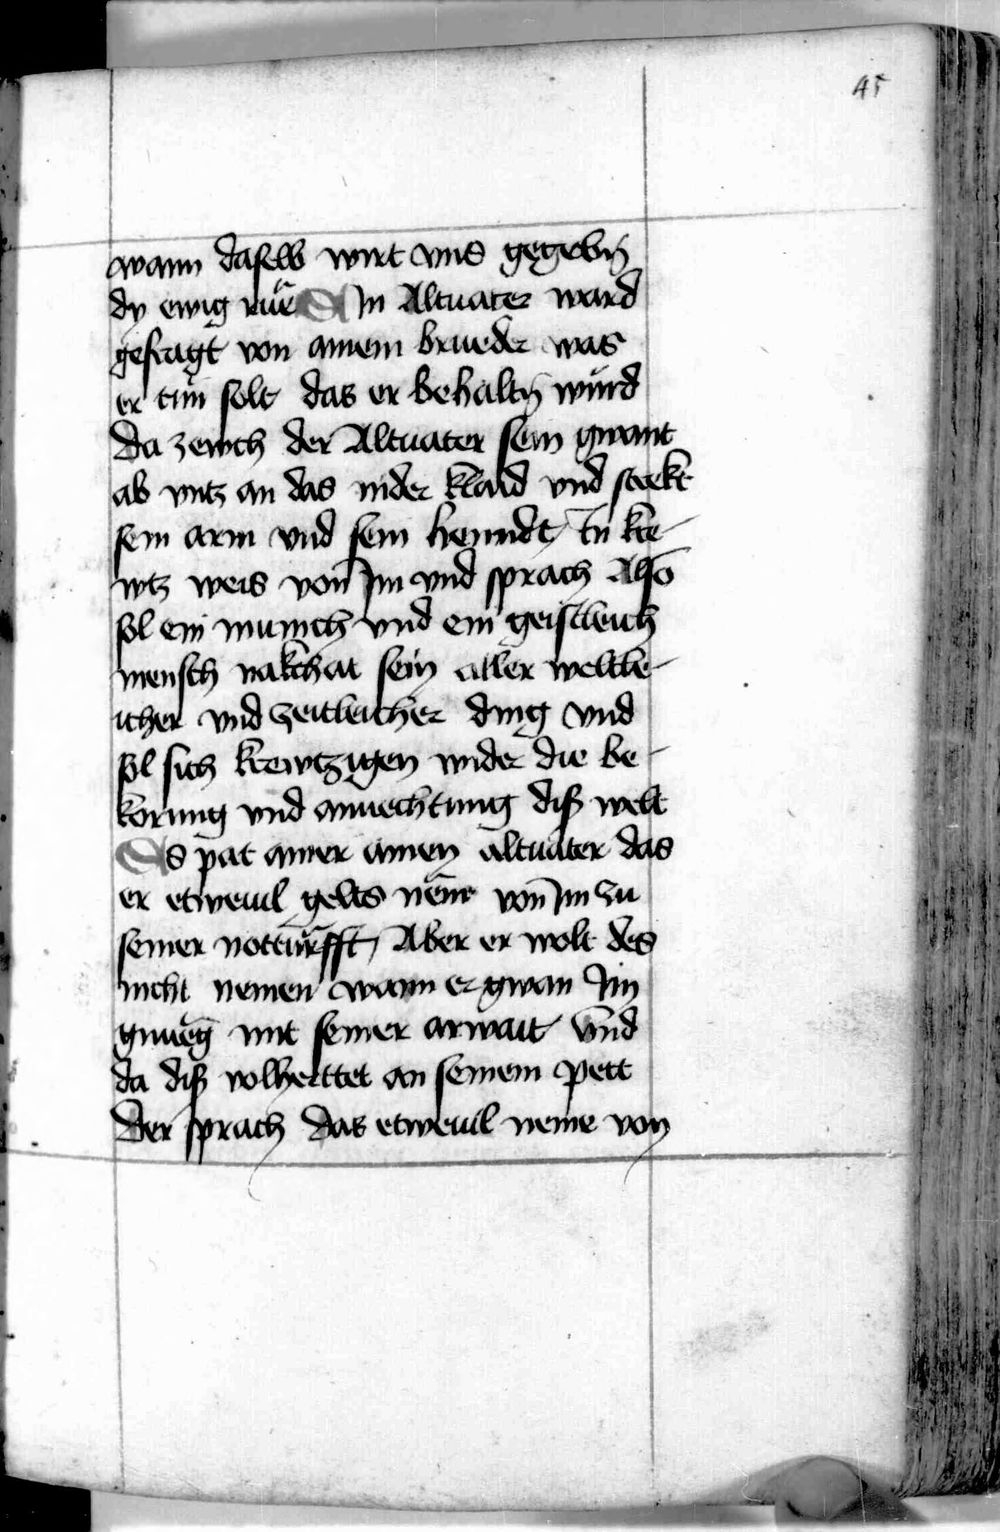 45
wann daselb wirt vns gegebn̄
dy ewig rue Ein Altuater ward
gefragt von ainem brueder was
er tun solt das er behaltn̄ wurd
da zewch der Altuater sein gwant
ab vntz an das nider klaid vnd strekt
sein arm vnd sein henndt In kre-
wtz weis von Im vnd sprach Also
sol ein munich vnd ein geistleich
mensch nakchat sein aller weltle-
icher vnd zeitleicher ding vnd
sol sich krewtzigen wider die be-
korung vnd anuechtung diß welt
Es pat ainer ainen altuater das
er etweuil gelts neme von Im zu
seiner notturfft, Aber er wolt des
nicht nemen wann er gwan Im
gnueg mit seiner arwait Vnd
da diß volherttet an seinem pett
Der sprach das etweuil neme von